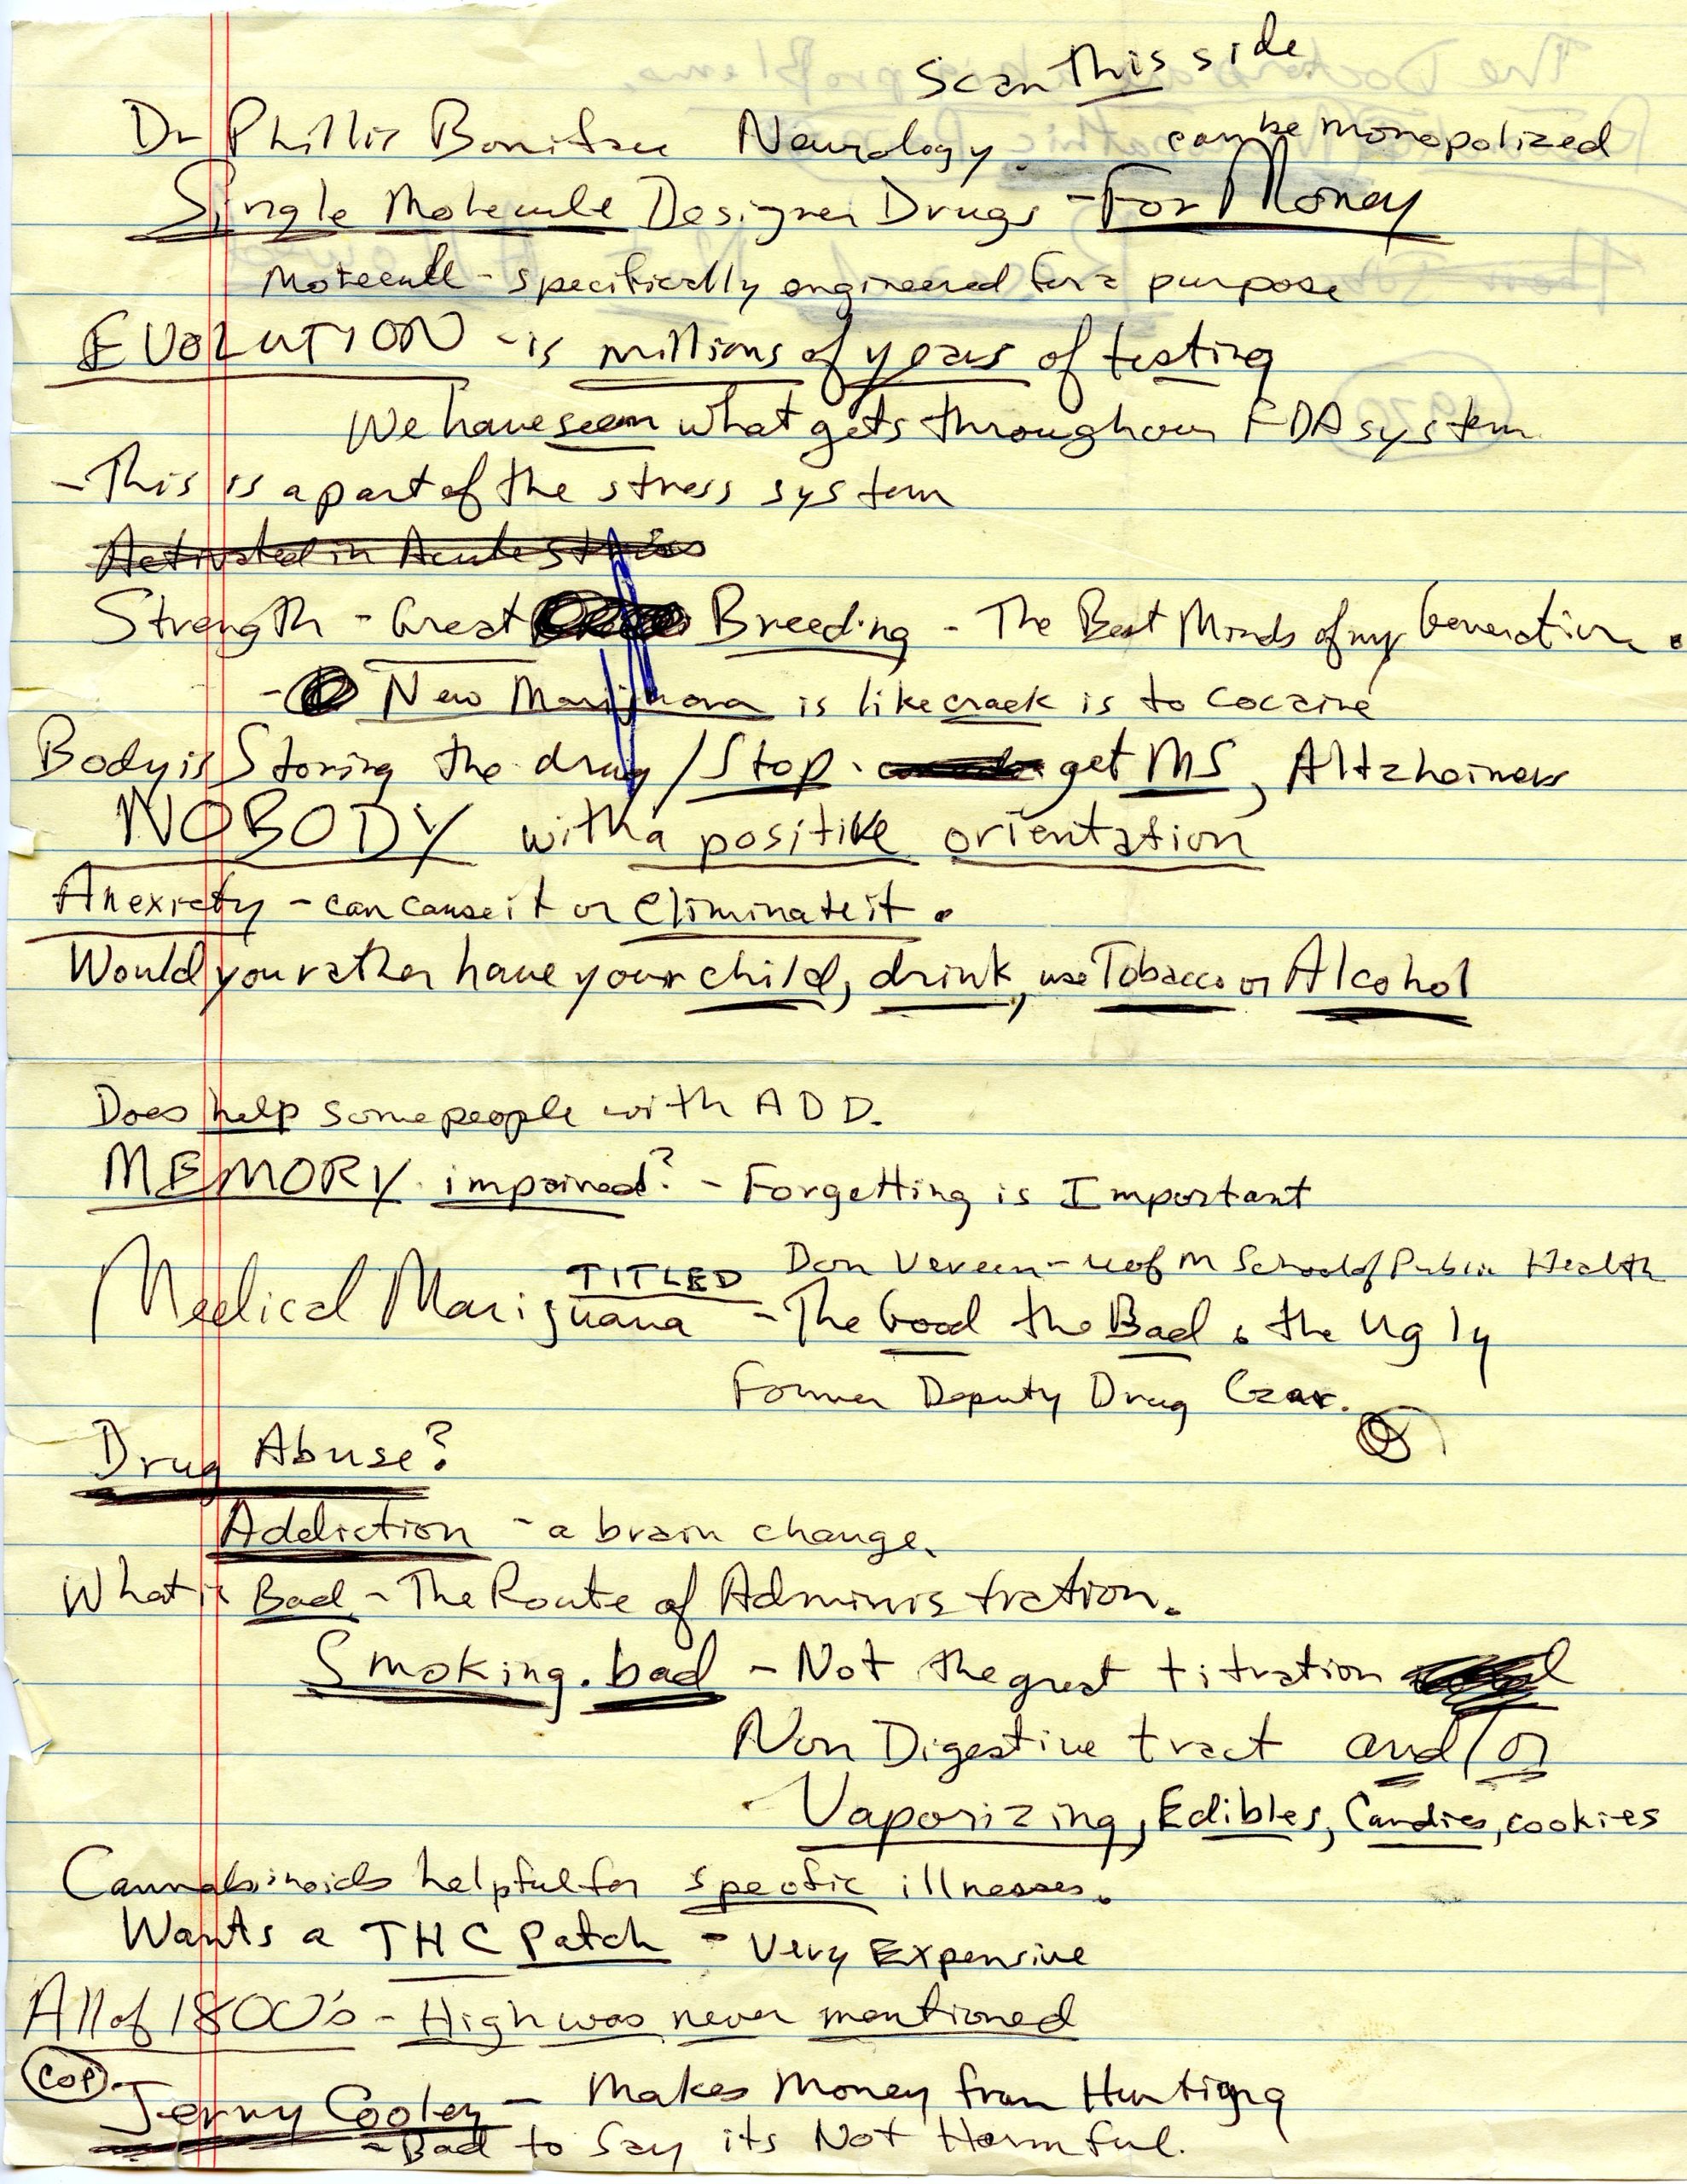 Scan This side
Dr Phillis Bonitzu Neurology. can be monopolized
Single Molecule Designer Drugs - For Money
Molecule - specifically engineered for a purpose
EVOLUTION - is millions of years of testing
We have seen what gets through our FDA system
- This is a part of the stress system
Activated in Acute stress
Strength - Great Breeding - The Best Minds of my Generation.
- New Marijuana is like crack is to cocaine
Body is Storing the drug / Stop. get MS, Altzheimers
NOBODY with a positive orientation
Anexiety - can cause it or eliminate it.
Would you rather have your child, drink, use Tobacco or Alcohol
Does help some people with ADD.
MEMORY impaired? - Forgetting is Important
TITLED Don Vereen - u of M School of Public Health
Medical Marijuana - The Good the Bad & the Ugly
Former Deputy Drug Czar.
Drug Abuse?
Addiction - a brain change.
What is Bad - The Route of Administration.
Smoking. bad - Not the great titration
Non Digestive tract and/or
Vaporizing, Edibles, Candies, cookies
Cannabinoids helpful for speofic illnesses.
Wants a THC Patch - Very Expensive
All of 1800's - High was never mentioned
COP
Jerry Cooley - Makes Money from
- Bad to Say its Not Harmful.